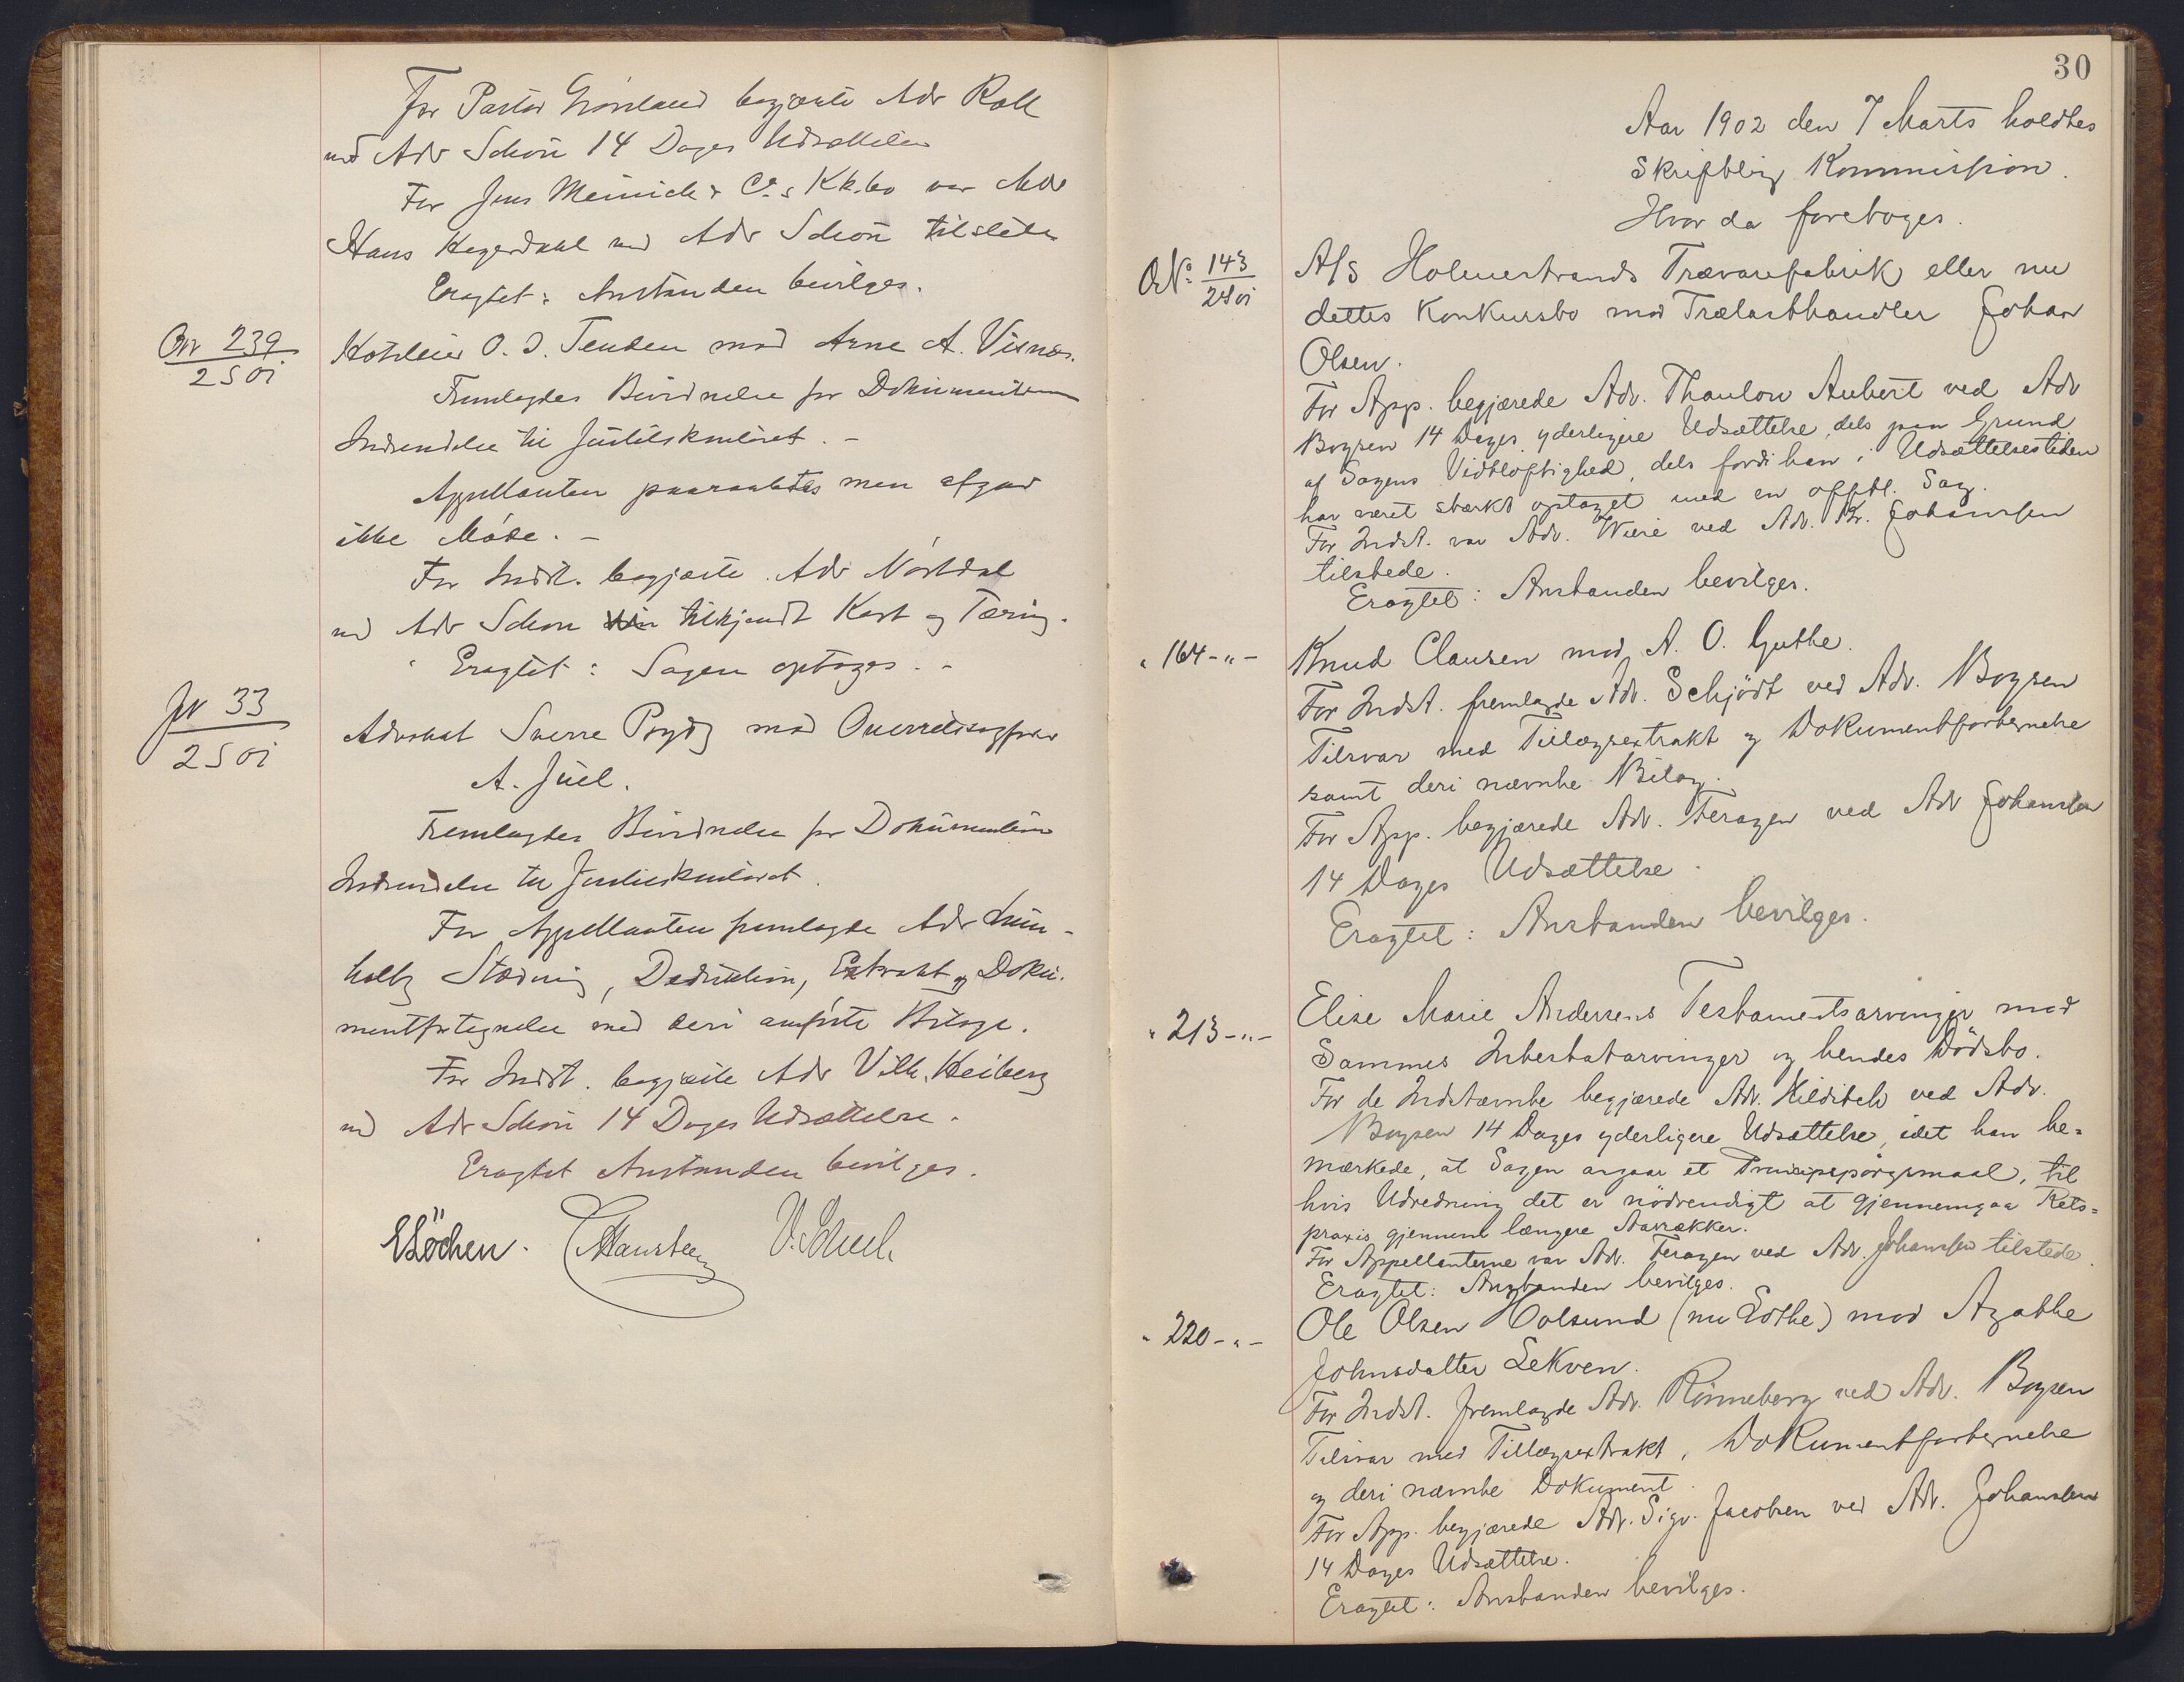 For Pastor Grönland begjærte Adv Roll
ved Adv Schou 14 Dages Udsættelse
For Jens Meinich & Co.s Kk.bo var Adv
Hans Hagerdahl ved Adv Schou tilstede
Eragtet: Anstanden bevilges.
Onr 239
2 s 01
O. I. Tenden mod Arne A. Visnæs.
Fremlagdes Bevidnelse for Dokumenternes
Indsendelse til Justitskontoret. -
Appellanten paaraabtes men afgav
ikke Møde. -
For Indst. begjærte Adv Nörtdal
ved Adv Schou tilkjendt Kost og Tæring.
Eragtet: Sagen optages. -
Jv 33
2 s 01
Advokat Sverre mod Overretssagfører
A. Juel.
Fremlagdes Bevidnelse for Dokumenternes
Indsendelse til Justitskontoret.
For Appellanten fremlagde Adv Lum-
holtz Stævning, Deduktion, Extrakt og Doku-
mentfortegnelse med deri anførte Bilage.
For Indst. begjærte Adv Vilh. Heiberg
ved Adv Schou 14 Dages Udsættelse.
Eragtet Anstanden bevilges.
E Löchen. C Hansteen V. Scheel.
30
Aar 1902 den 7 Marts holdtes
Skriftlig Kommission.
Hvor da foretoges.
O. No. 143
2 s 01
A/S Holmestrands Trævarefabrik eller nu
dettes Konkursbo mod Trælasthandler Johan
Olsen.
For App. begjærede Adv. Thaulow Aubert ved Adv
Boysen 14 Dages yderligere Udsættelse, dels paa Grund
af Sagens Vidtløftighed, dels fordi han i Udsættelsestiden
har været stærkt optaget med en offtl. Sag.
For Indst. var Adv. Wiese ved Adv. Kr. Johanssen
tilstede.
Eragtet: Anstanden bevilges.
" 164 - " -
Knud Clausen mod A. O. Guthe.
For Indst. fremlagde Adv. Schjödt ved Adv. Boysen
Tilsvar med Tillægsextrakt og Dokumentfortegnelse
samt deri nævnte Bilag.
For App. begjærede Adv. Feragen ved Adv Johanssen
14 Dages Udsættelse.
Eragtet: Anstanden bevilges.
" 213 - " -
Elise Marie Andersens Testamentsarvinger mod
Sammes Intestatarvinger og hendes Dödsbo.
For de Indstævnte begjærede Adv. Kildibeh ved Adv.
Boysen 14 Dages yderligere Udsættelse, idet han be-
mærkede, at Sagen angaar et Principspörgsmaal, til
hvis Udredning det er nödvendigt at gjennemgaa Rets-
praxis gjennem længere Aarrækker.
For Appellanterne var Adv. Feragen ved Adv. Johanssen tilstede.
Eragtet: Anstanden bevilges.
" 220 - " -
Ole Olsen Holsund (nu Lothe) mod Agathe
Johnsdatter Sekven.
For Indst. fremlagde Adv. Rönneberg ved Adv. Boysen
Tilsvar med Tillægsextrakt, Dokumentfortegnelse
og deri nævnte Dokument.
For App. begjærede Adv. Sigv. Jacobsen ved Adv. Johanssen
14 Dages Udsættelse.
Eragtet: Anstanden bevilges.